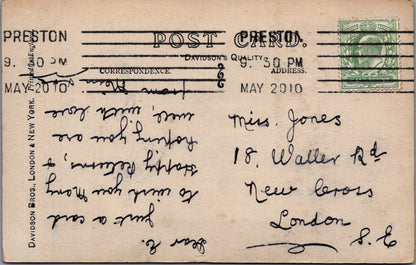 PRESTON
9. 30 PM
MAY 20 10
POST CARD.
DAVIDSON'S QUALITY
CORRESPONDENCE.
ADDRESS.
PRESTON
9. 30 PM
MAY 20 10
DAVIDSON BROS., LONDON & NEW YORK.
Dear E.
Just a card
to wish you Many
Happy Returns, &
hoping you are
well, with love
from
Miss. Jones
18. Waller Rd
New Cross
London
S. E